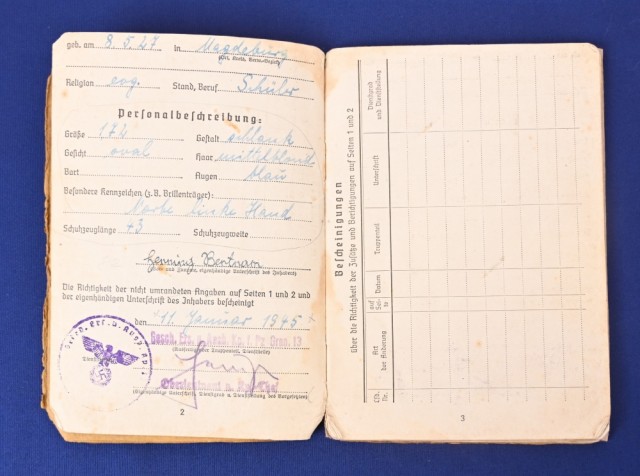 geb. am 8.5.27 in Magdeburg
Religion evg. Stand, Beruf Schüler
Personalbeschreibung:
Größe 172 Gestalt schlank
Gesicht oval Haar mittelblond
Bart Augen blau
Besondere Kennzeichen (z.B. Brillenträger):
Narbe linke Hand
Schuhzeuglänge 43 Schuhzeugweite
Henning
(Vor- und Zuname, eigenhändige Unterschrift des Inhabers)
Die Richtigkeit der nicht umrandeten Angaben auf Seiten 1 und 2 und
der eigenhändigen Unterschrift des Inhabers bescheinigt
den 11. Januar 1945
Oberleutnant u.
(Eigenhändige Unterschrift, Dienstgrad u. Dienststellung des Vorgesetzten)
2
Bescheinigungen
über die Richtigkeit der Zusätze und Berichtigungen auf Seiten 1 und 2
Lfd. Nr.
Art der Änderung
auf Seite
Datum
Truppenteil
Unterschrift
Dienstgrad und Dienststellung
3